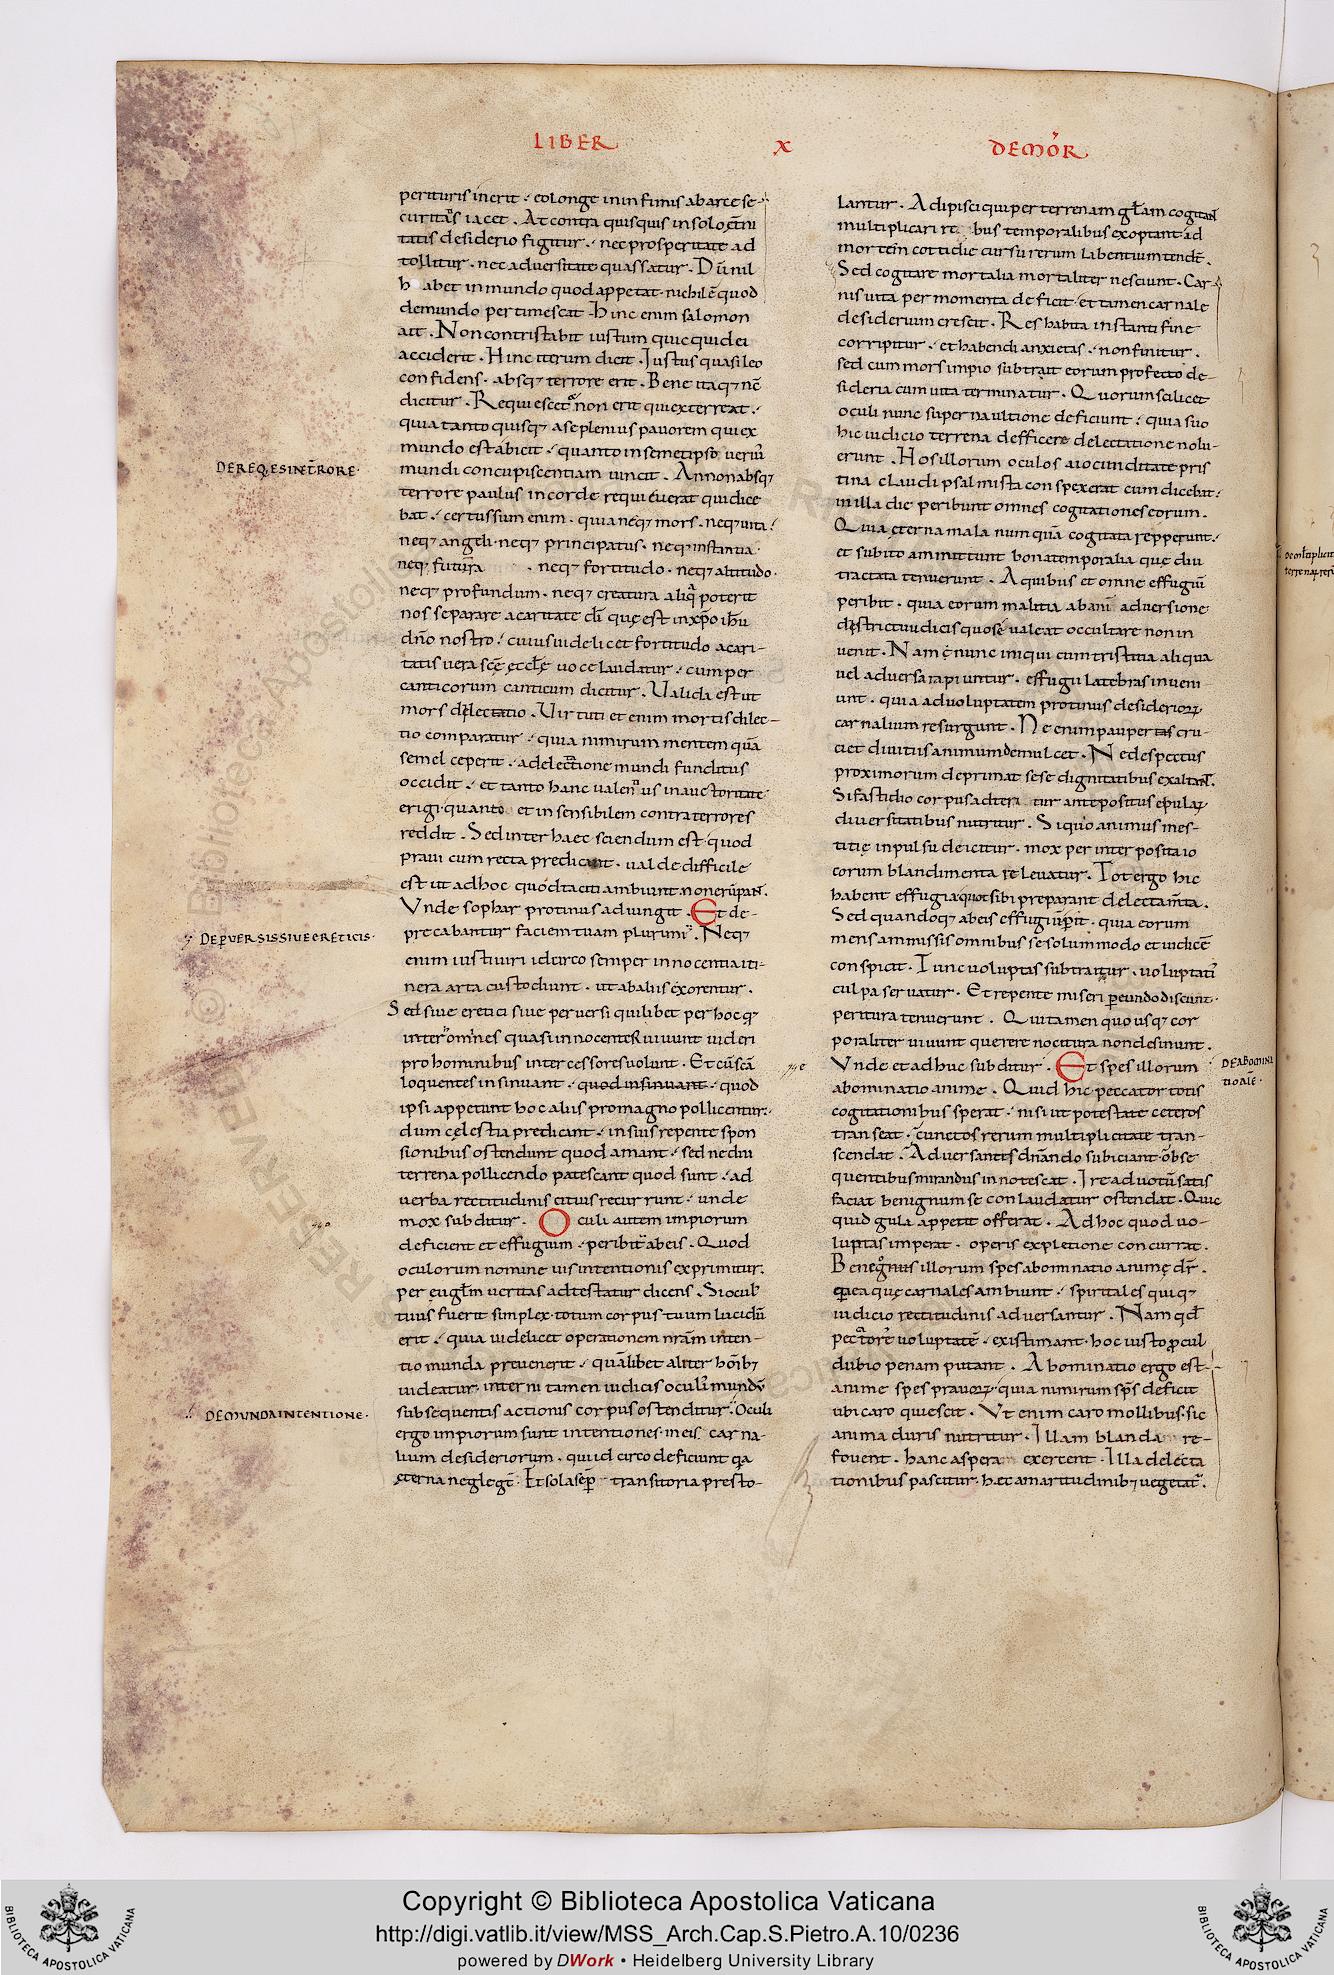 LIBER X DE MOR̄
perituris inerit · eo longe in infimis ab arce se-
curitatis iacet . At contra quisquis in solo ęt̄ni
tatis desiderio figitur · nec prosperitate ad
tollitur · nec adversitate quassatur . Dū nil
habet in mundo quod appetat · nichil ē quod
de mundo pertimescat . Hinc enim salomon
ait . Non contristabit iustum quicquid ei
acciderit . Hinc iterum dicit . Iustus quasi leo
confidens · absq; terrore erit . Bene itaq; nc̄
dicitur . Requiesces & non erit qui exterreat .
quia tanto quisq; a se plenius pavorem qui ex
mundo est abicit · quanto in semetipso verius
mundi concupiscentiam vincit . An non absq;
DE REQ̨ẸSINET̄RORE ·
terrore paulus in corde requieverat qui dice
bat · certus sum enim · quia neq; mors · neq; vita ·
neq; angeli · neq; principatus · neq; instantia ·
neq; futura · neq; fortitudo · neq; altitudo ·
neq; profundum · neq; creatura aliq̄ poterit
nos separare a caritate dī quę est in xp̄o ih̄u
dn̄o nostro · cuius videlicet fortitudo cari-
tatis vera scę̄ ęcclę̄ voce laudatur · cum per
canticorum canticum dicitur . Valida est ut
mors dilectatio . Virtuti etenim mortis dilec-
tio comparatur · quia nimirum mentem quā
semel ceperit · a delectatione mundi funditus
occidit · et tanto hanc valentius in auctoritate
erigi · quanto et insensibilem contra terrores
reddit . Sed inter haec sciendum est quod
pravi cum recta predicant · valde difficile
est ut ad hoc quod taciti ambiunt non erūpant .
Vnde sophar protinus adiungit . Et de-
precabantur faciem tuam plurimi . Neq;
DE PERVERSIS SIVE ERETICIS ·
enim iusti viri idcirco semper innocentia iti-
nera arta custodiunt · ut ab aliis exorentur .
Sed sive eretici sive perversi quilibet per hoc q̄
inter omnes quasi innocenter vivunt videri
pro hominibus intercessores volunt . Et cū scā
loquentes insinuant · quod insinuant · quod
ipsi appetunt hoc aliis pro magno pollicentur ·
dum cęlestia predicant · in suis repente spon
sionibus ostendunt quod amant · sed ne diu
terrena pollicendo patescant quod sunt · ad
verba rectitudinis citius recurrunt · unde
mox subditur . Oculi autem impiorum
deficient et effugium · peribit ab eis . Quod
oculorum nomine vis intentionis exprimitur ·
per euglm̄ veritas adtestatur dicens . Si ocul'
tuus fuerit simplex · totum corpus tuum lucidū
erit · quia videlicet operationem nrām inten-
tio munda prevenerit · quālibet aliter hoīb;
videatur · interni tamen iudicis oculis mundū
subsequentis actionis corpus ostenditur . Oculi
DE MUNDA INTENTIONE ·
ergo impiorum sunt intentiones in eis carna-
lium desideriorum · qui idcirco deficiunt qa
ęterna neglegt̄ . Et sola sep̄ transitoria presto-
lantur . Adipisci qui per terrenam gl̄am cogitant
multiplicari re bus temporalibus exoptant ad
mortem cottidie cursu rerum labentium tendt̄ .
Sed cogitare mortalia mortaliter nesciunt . Car-
nis vita per momenta deficit · et tamen carnale
desiderium crescit . Res habita instanti fine
corripitur · et habendi anxietas · non finitur .
sed cum mors impio subtrait eorum profecto de-
sideria cum vita terminatur . Quorum scilicet
oculi nunc superna ultione deficiunt · quia suo
hic iudicio terrena defficere delectatione nolu-
erunt . Hos illorum oculos a iocunditate pris
tina claudi psalmista conspexerat cum dicebat ·
in illa die peribunt omnes cogitationes eorum .
Quia ęterna mala numquā cogitata repperunt ·
et subito amittunt bona temporalia quę diu
tractata tenuerunt . A quibus et omne effugiū
peribit · quia eorum malitia ab animadversione
districti iudicis quo se valeat occultare non in
venit . Nam ę nunc iniqui cum tristitia aliqua
vel adversa rapiuntur · effugii latebras inveni-
unt · quia ad voluptatem protinus desideriorum
carnalium resurgunt . Ne enim paupertas cru-
ciet divitiis animum demulcet . Ne despectus
proximorum deprimat sese dignitatibus exaltant .
Si fastidio corpus adteri tur antepositus epularum
diversitatibus nutritur . Si quo animus mes-
titię inpulsu deicitur · mox per interposita io
corum blandimenta relevatur . Tot ergo hic
habent effugia quot sibi preparant delectam̄ta .
Sed quandoq; ab eis effugiū p̄it · quia eorum
mens ammissis omnibus se solummodo et iudicē
conspicit . Tunc voluptas subtraitur · voluptatis
culpa servatur . Et repente miseri pereundo discunt ·
peritura tenuerunt . Qui tamen quousq; cor
poraliter vivunt querere nocitura non desinunt .
Vnde et adhuc subditur . Et spes illorum
DE ABOMINA
TIO ALĒ ·
abominatio anime . Quid hic peccator totis
cogitationibus sperat · nisi ut potestate ceteros
transeat · cunctos rerum multiplicitate tran-
scendat . Adversantes dn̄ando subiciant · obse
quentibus mirandus innotescat . Ire ad votū satis
faciat benignum se conlaudatur ostendat . Quic
quid gula appetit offerat . Ad hoc quod vo-
luptas imperat · operis expletione concurrat .
Bene igitur illorum spes abominatio animę dr̄ .
quia ea quę carnales ambiunt · spiritales quiq;
iudicio rectitudinis adversantur . Nam qd̄
peccatores voluptatē · existimant · hoc iusto procul
dubio penam putant . Abominatio ergo est
anime spes pravorum · quia nimirum sp̄s deficit
ubi caro quiescit . Vt enim caro mollibus sic
anima duris nutritur . Illam blanda re-
fovent · hanc aspera exercent . Illa delecta
tionibus pascitur · hęc amaritudinib; vegetat .
Copyright © Biblioteca Apostolica Vaticana
http://digi.vatlib.it/view/MSS_Arch.Cap.S.Pietro.A.10/0236
powered by DWork • Heidelberg University Library